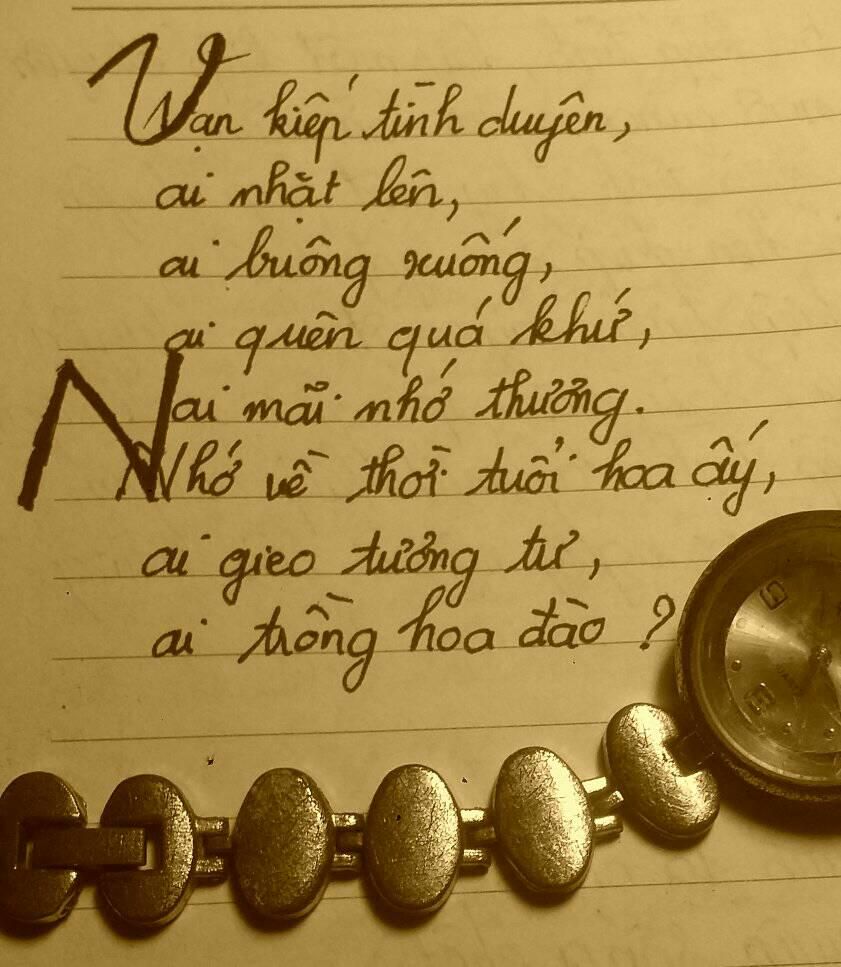 Vạn kiếp tình duyên,
ai nhặt lên,
ai buông xuống,
ai quên quá khứ,
ai mãi nhớ thương.
Nhớ về thời tuổi hoa ấy,
ai gieo tương tư,
ai trồng hoa đào ?